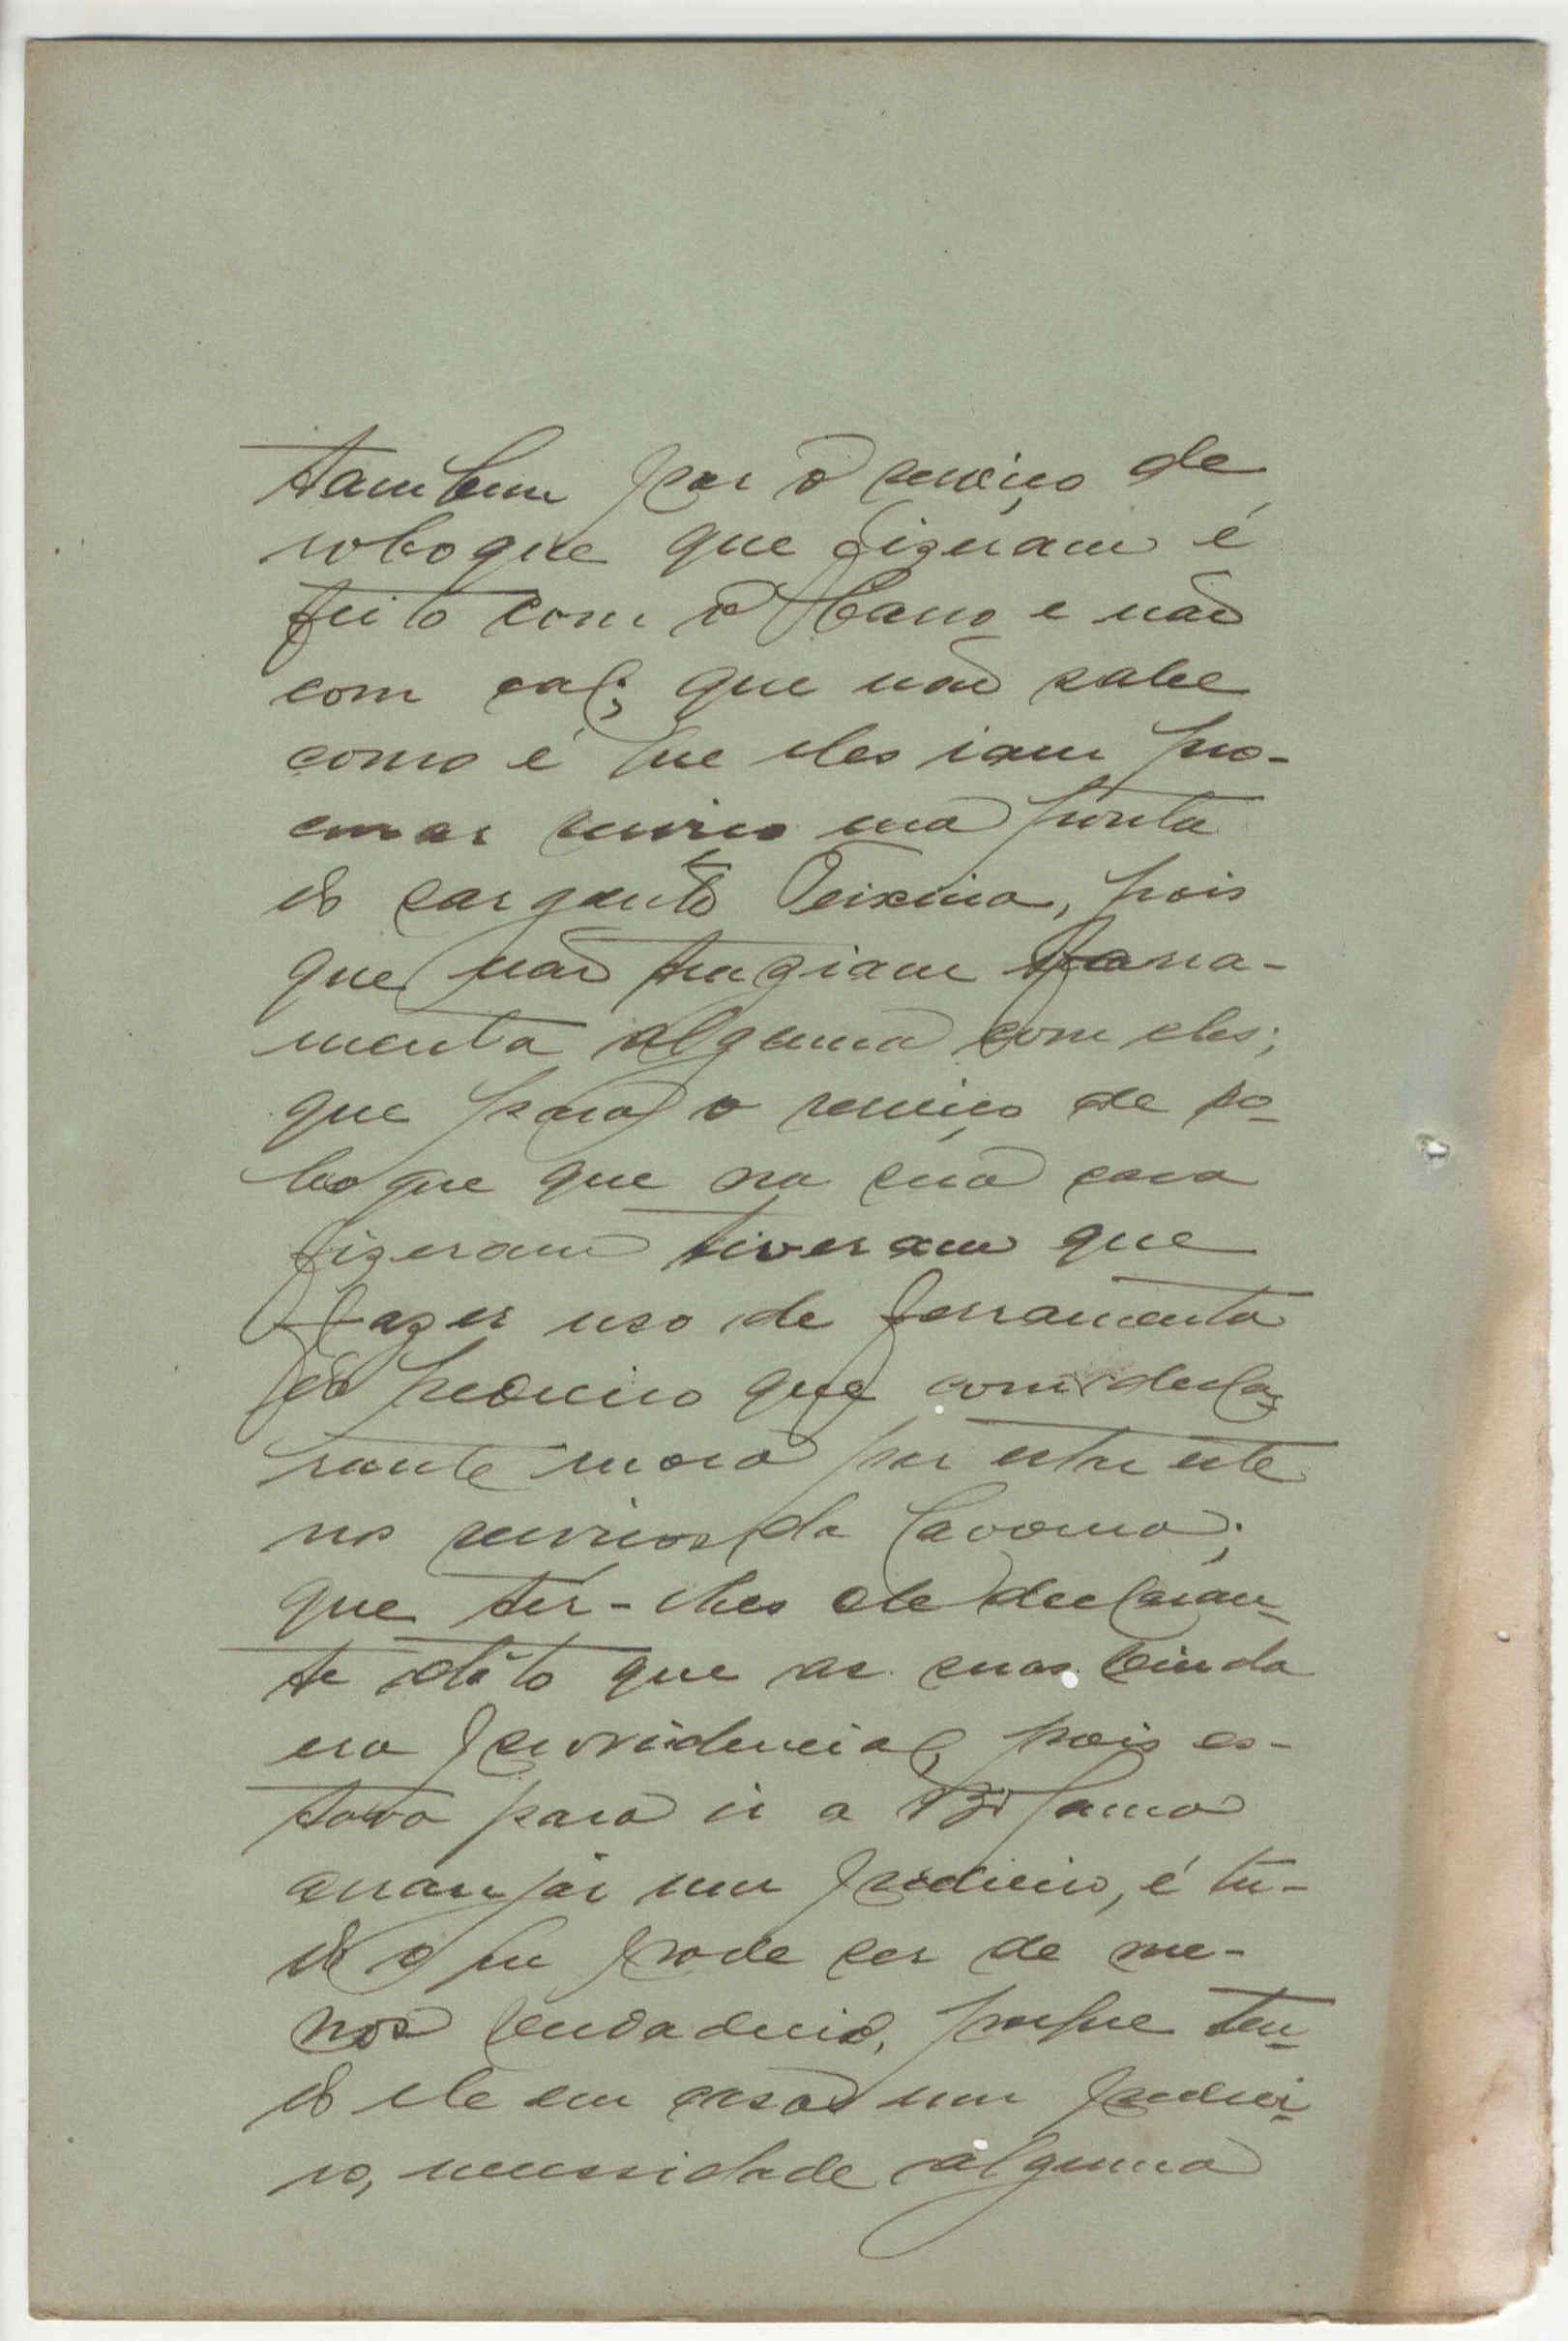 tambem por o serviço de
roboque que fizeram é
feito com o barro e não
com cal; que não sabe
como é que eles iam pro-
curar serviço na ponta
do sargento Teixeira, pois
que não traziam farra-
menta alguma com eles;
que para o serviço de ro-
boque que na sua casa
fizeram tiveram que
fazer uso de ferramenta
do pedreiro que com decla-
rante mora por estar este
no serviço da lavoura;
que ter-lhes ele declaran-
te dito que as suas vinda
era providencial, pois es-
tava para ir a
arranjar um pedreiro, é tu-
do o que pode ser de me-
nos verdadeiro, porque ten-
do ele em casa um pedrei-
ro, necessidade alguma